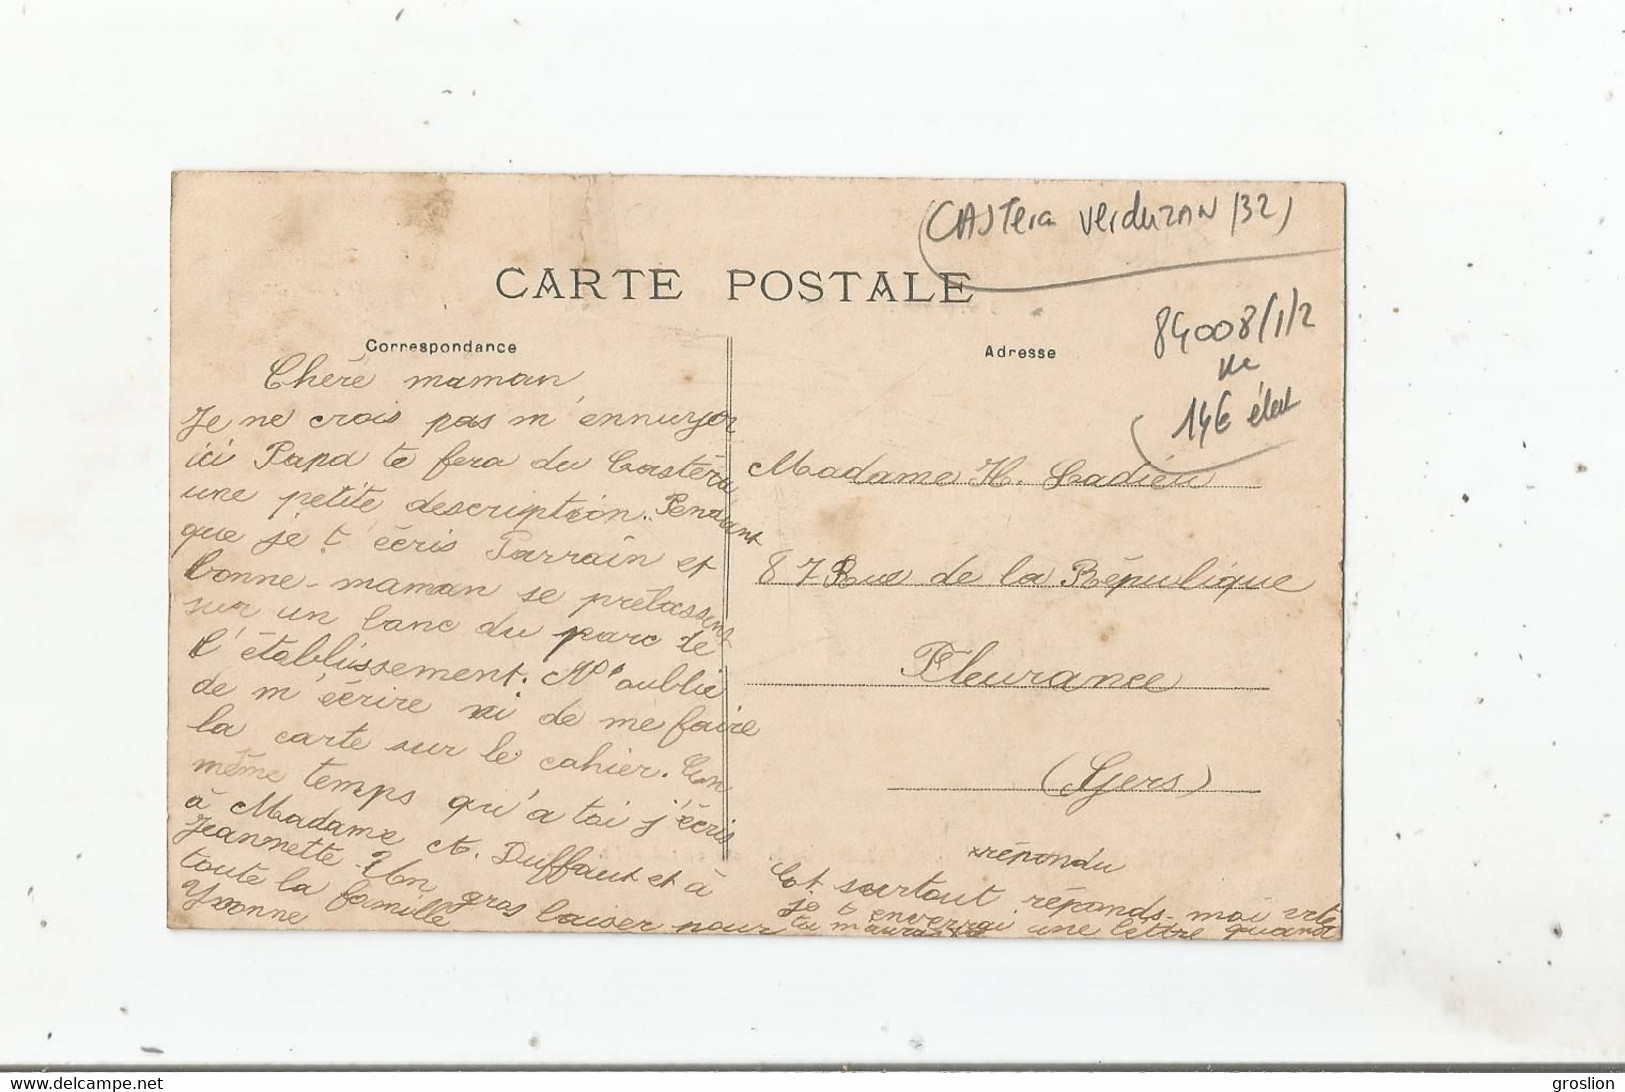 (CASTera VerduzAN (32)
CARTE POSTALE
84008/1/2
14€ état
Correspondance
Adresse
Chère maman
Je ne crois pas m'ennuyer
ici Papa te fera du Castéra
une petite description. Pendant
que je t'écris Parrain et
bonne-maman se prélassent
sur un banc du parc de
l'établissement. N'oublie
de m'écrire ni de me faire
la carte sur le cahier. En
même temps qu'a toi j'écris
à Madame A. Duffaut et à
Jeannette. Un gros baiser pour
toute la famille
Yvonne
Madame H. Ladieu
87 Rue de la République
Fleurance
(Gers)
répondu
Et surtout réponds-moi vite
je t'enverrai une lettre quand
tu m'auras
groslion